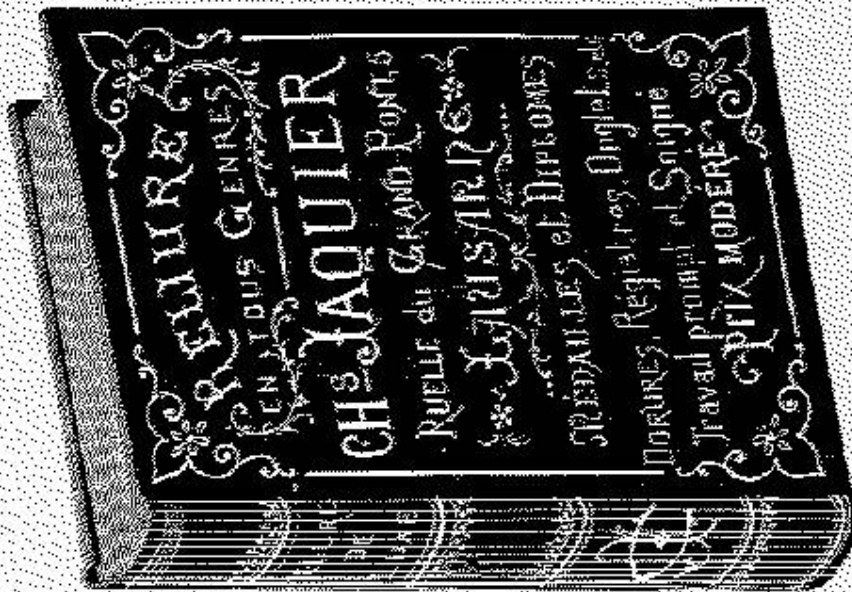 RELIURE
EN TOUS GENRES
CHS JAQUIER
RUELLE du GRAND-PONT 8
LAUSANNE
MEDAILLES et DIPLOMES
DORURES, Régistres, Onglets, &
Travail prompt et Soigné
PRIX MODÉRÉ
DE